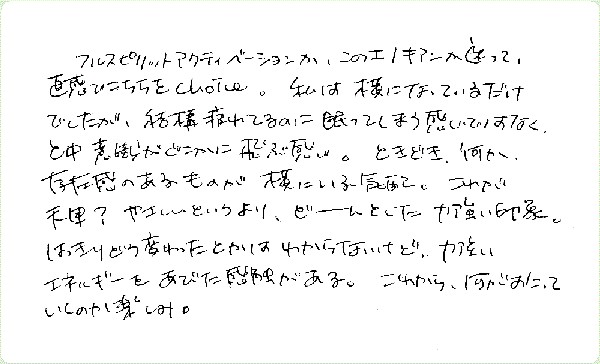 フルスピリットアクティベーションか、このエノキアンか迷って、
直感でこちらをchoice。私は横になっているだけ
でしたが、結構疲れてるのに眠ってしまう感じではなく、
途中意識がどこかに飛ぶ感じ。ときどき、何か、
存在感のあるものが横にいる気配。これが
天使？やさしいというより、どーんとした力強い印象。
はっきりどう変わったとかはわからないけど、力強い
エネルギーをあびた感触がある。これから、何がおこって
いくのか楽しみ。